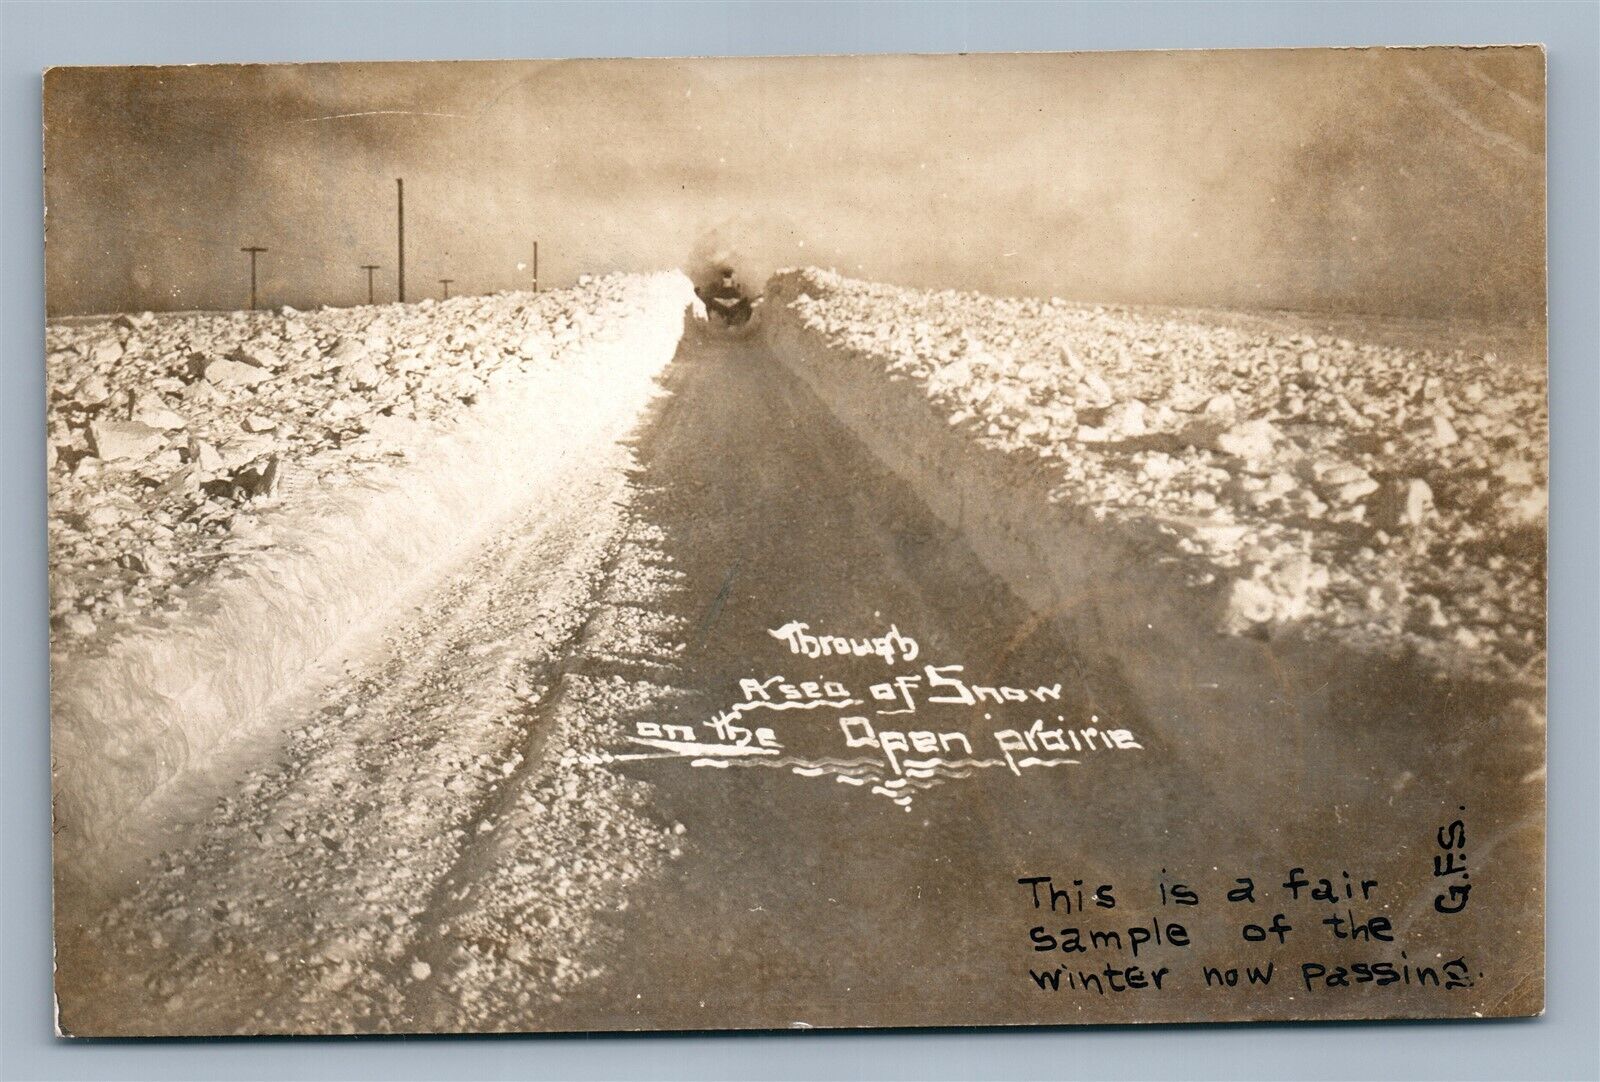 Through
A sea of Snow
on the Open prairie
This is a fair
sample of the
winter now passing.
G.F.S.